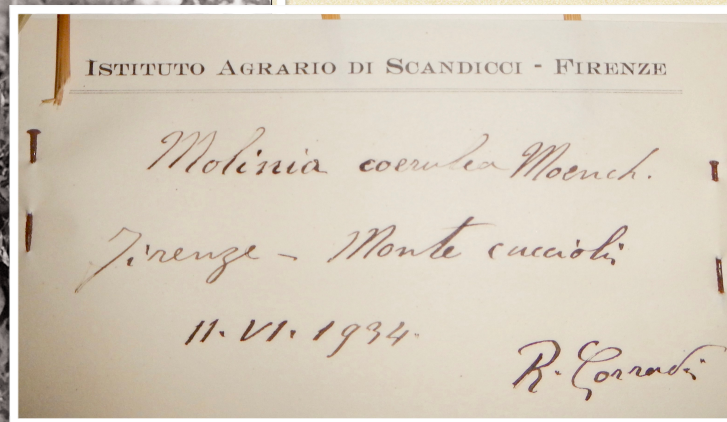 ISTITUTO AGRARIO DI SCANDICCI - FIRENZE
Molinia coerulea Moench.
Firenze - Monte cuccioli
11. VI. 1934.
R. Corradi